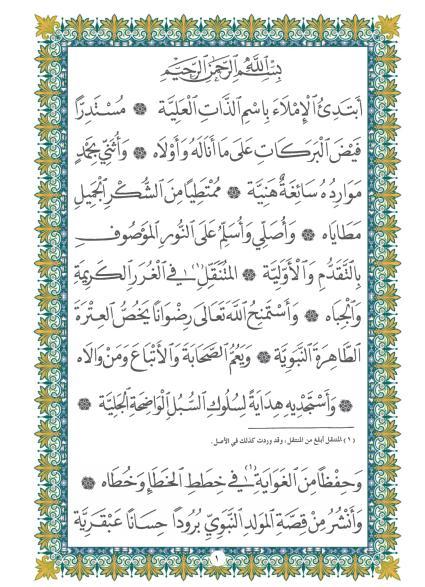 بِسْمِ اللهِ الرَّحْمٰنِ الرَّحِيْمِ
أَبْتَدِئُ الْإِمْلَاءَ بِاسْمِ الذَّاتِ الْعَلِيَّة ۞ مُسْتَدِرًّا
فَيْضَ الْبَرَكَاتِ عَلَى مَا أَنَالَهُ وَأَوْلَاه ۞ وَأُثَنِّي بِحَمْدٍ
مَوَارِدُهُ سَائِغَةٌ هَنِيَّة ۞ مُمْتَطِيًا مِنَ الشُّكْرِ الْجَمِيلِ
مَطَايَاه ۞ وَأُصَلِّي وَأُسَلِّمُ عَلَى النُّورِ الْمَوْصُوفِ
بِالتَّقَدُّمِ وَالْأَوَّلِيَّة ۞ الْمُتَنَقِّلِ(١) فِي الْغُرَرِ الْكَرِيمَةِ
وَالْجِبَاه ۞ وَأَسْتَمْنِحُ اللهَ تَعَالَى رِضْوَانًا يَخُصُّ الْعِتْرَةَ
الطَّاهِرَةَ النَّبَوِيَّة ۞ وَيَعُمُّ الصَّحَابَةَ وَالْأَتْبَاعَ وَمَنْ وَالَاه
۞ وَأَسْتَجْدِيهِ هِدَايَةً لِسُلُوكِ السُّبُلِ الْوَاضِحَةِ الْجَلِيَّة ۞
(١) المتنقل أبلغ من المنتقل، وقد وردت كذلك في الأصل.
وَحِفْظًا مِنَ الْغَوَايَةِ(١) فِي خِطَطِ الْخَطَإِ وَخُطَاه ۞
وَأَنْشُرُ مِنْ قِصَّةِ الْمَوْلِدِ النَّبَوِيِّ بُرُودًا حِسَانًا عَبْقَرِيَّة
١